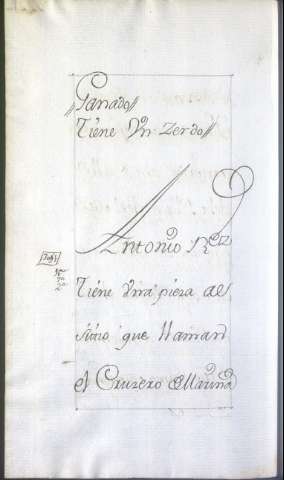 Ganado
Tiene Un Zerdo
Antonio Rz
Tiene Una pieza al
sitio que llaman
el Cruzero